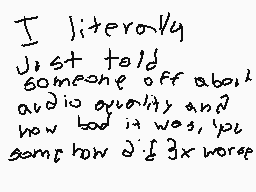 I literally
Just told
someone off about
audio quality and
how bad it was, you
somehow did 3x worse